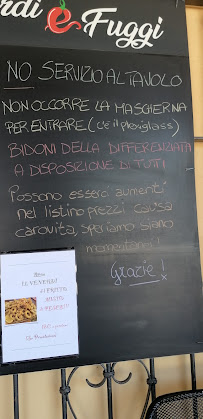 rdi e Fuggi
NO SERVIZIO AL TAVOLO
NON OCCORRE LA MASCHERINA
PER ENTRARE (c'è il plexiglass)
BIDONI DELLA DIFFERENZIATA
A DISPOSIZIONE DI TUTTI
Possono esserci aumenti
nel listino prezzi causa
carovita, speriamo siano
momentanei!!
Grazie!
IL VENERDI